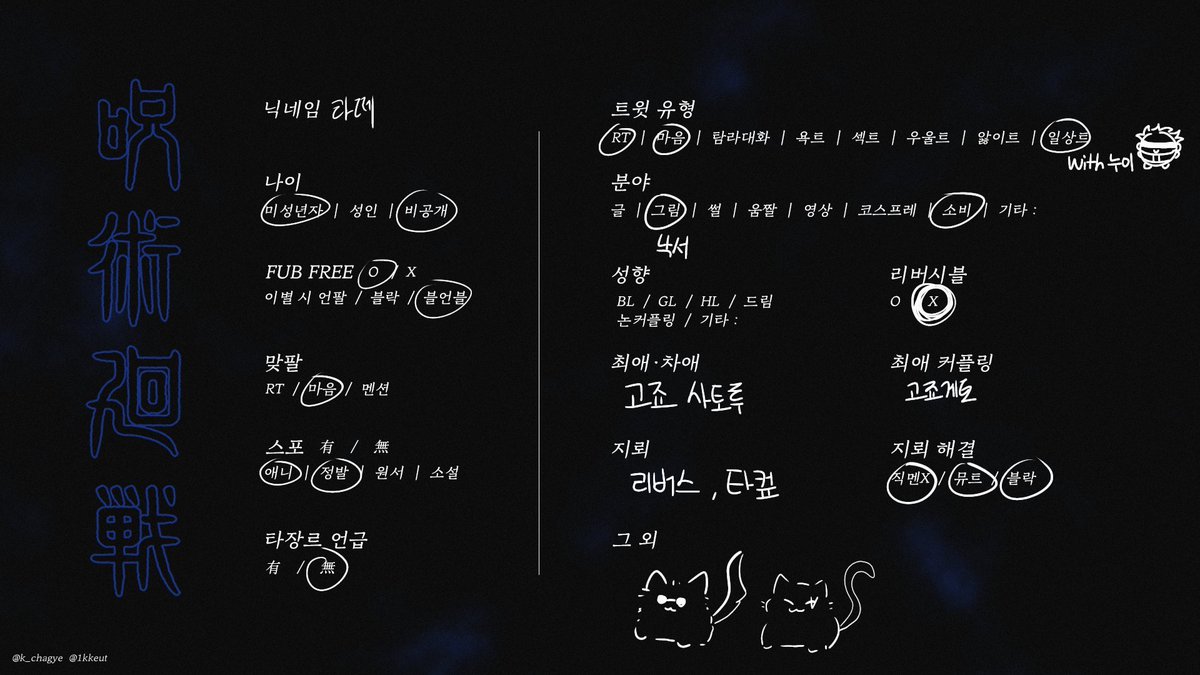 呪術廻戦
닉네임 타메
나이
미성년자 | 성인 | 비공개
FUB FREE O / X
이별 시 언팔 / 블락 / 블언블
맞팔
RT / 마음 / 멘션
스포 有 / 無
애니 | 정발 | 원서 | 소설
타장르 언급
有 / 無
트윗 유형
RT | 마음 | 탐라대화 | 욕트 | 섹트 | 우울트 | 앓이트 | 일상트
With 누이
분야
글 | 그림 | 썰 | 움짤 | 영상 | 코스프레 | 소비 | 기타 :
낙서
성향
BL / GL / HL / 드림
논커플링 / 기타 :
리버시블
O X
최애·차애
고죠 사토루
최애 커플링
고죠게토
지뢰
리버스 , 타컾
지뢰 해결
직멘X / 뮤트 / 블락
그 외
@k_chagye @1kkeut